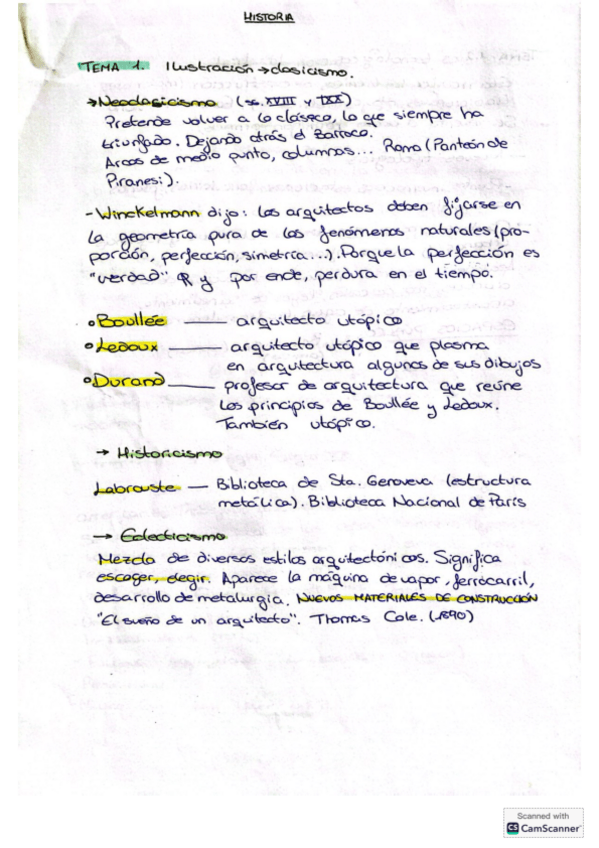 HISTORIA
TEMA 1. Ilustración → clasicismo.
→ Neoclasicismo (ss. XVIII y IXX)
Pretende volver a lo clásico, lo que siempre ha
triunfado. Dejando atrás el Barroco.
Arcos de medio punto, columnas... Roma (Panteón de
Piranesi).
- Winckelmann dijo: los arquitectos deben fijarse en
la geometría pura de los fenómenos naturales (pro-
porción, perfección, simetría...). Porque la perfección es
"verdad" y por ende, perdura en el tiempo.
• Boullée — arquitecto utópico
• Ledoux — arquitecto utópico que plasma
en arquitectura algunos de sus dibujos
• Durand — profesor de arquitectura que reúne
los principios de Boullée y Ledoux.
También utópico.
→ Historicismo
Labrouste — Biblioteca de Sta. Genoveva (estructura
metálica). Biblioteca Nacional de París
→ Eclecticismo
Mezcla de diversos estilos arquitectónicos. Significa
escoger, elegir. Aparece la máquina de vapor, ferrocarril,
desarrollo de metalurgia. NUEVOS MATERIALES DE CONSTRUCCIÓN
"El sueño de un arquitecto". Thomas Cole. (1890)
Scanned with
CS CamScanner